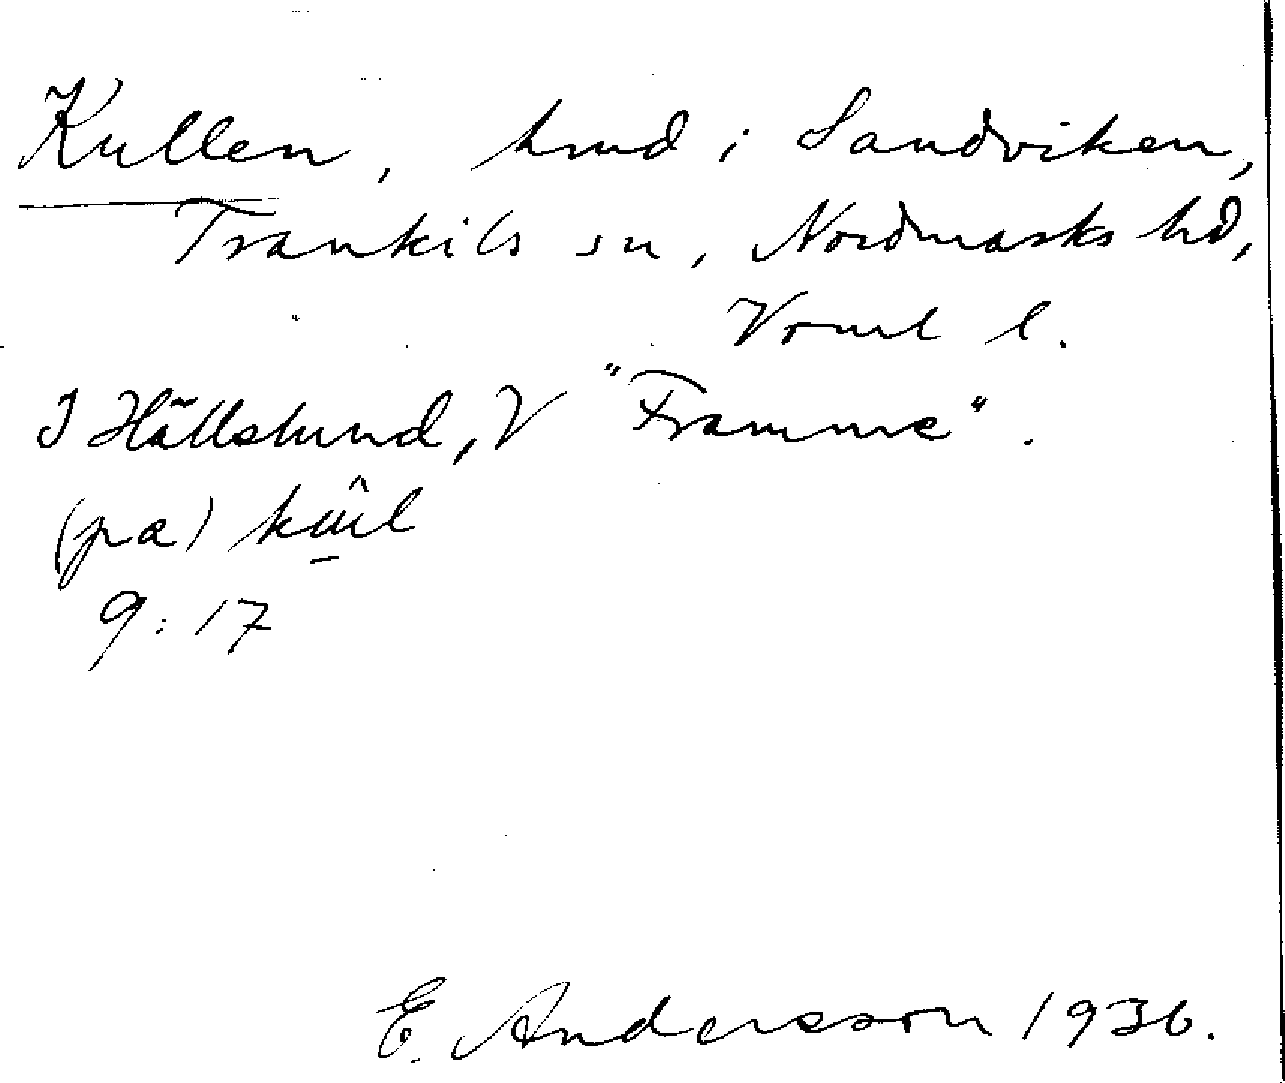 Kullen, hmd i Sandviken,
Trankils sn, Nordmarks hd,
Vrml l.
I Hällslund, V "Framme".
(pa)
9:17
E. Andersson 1936.